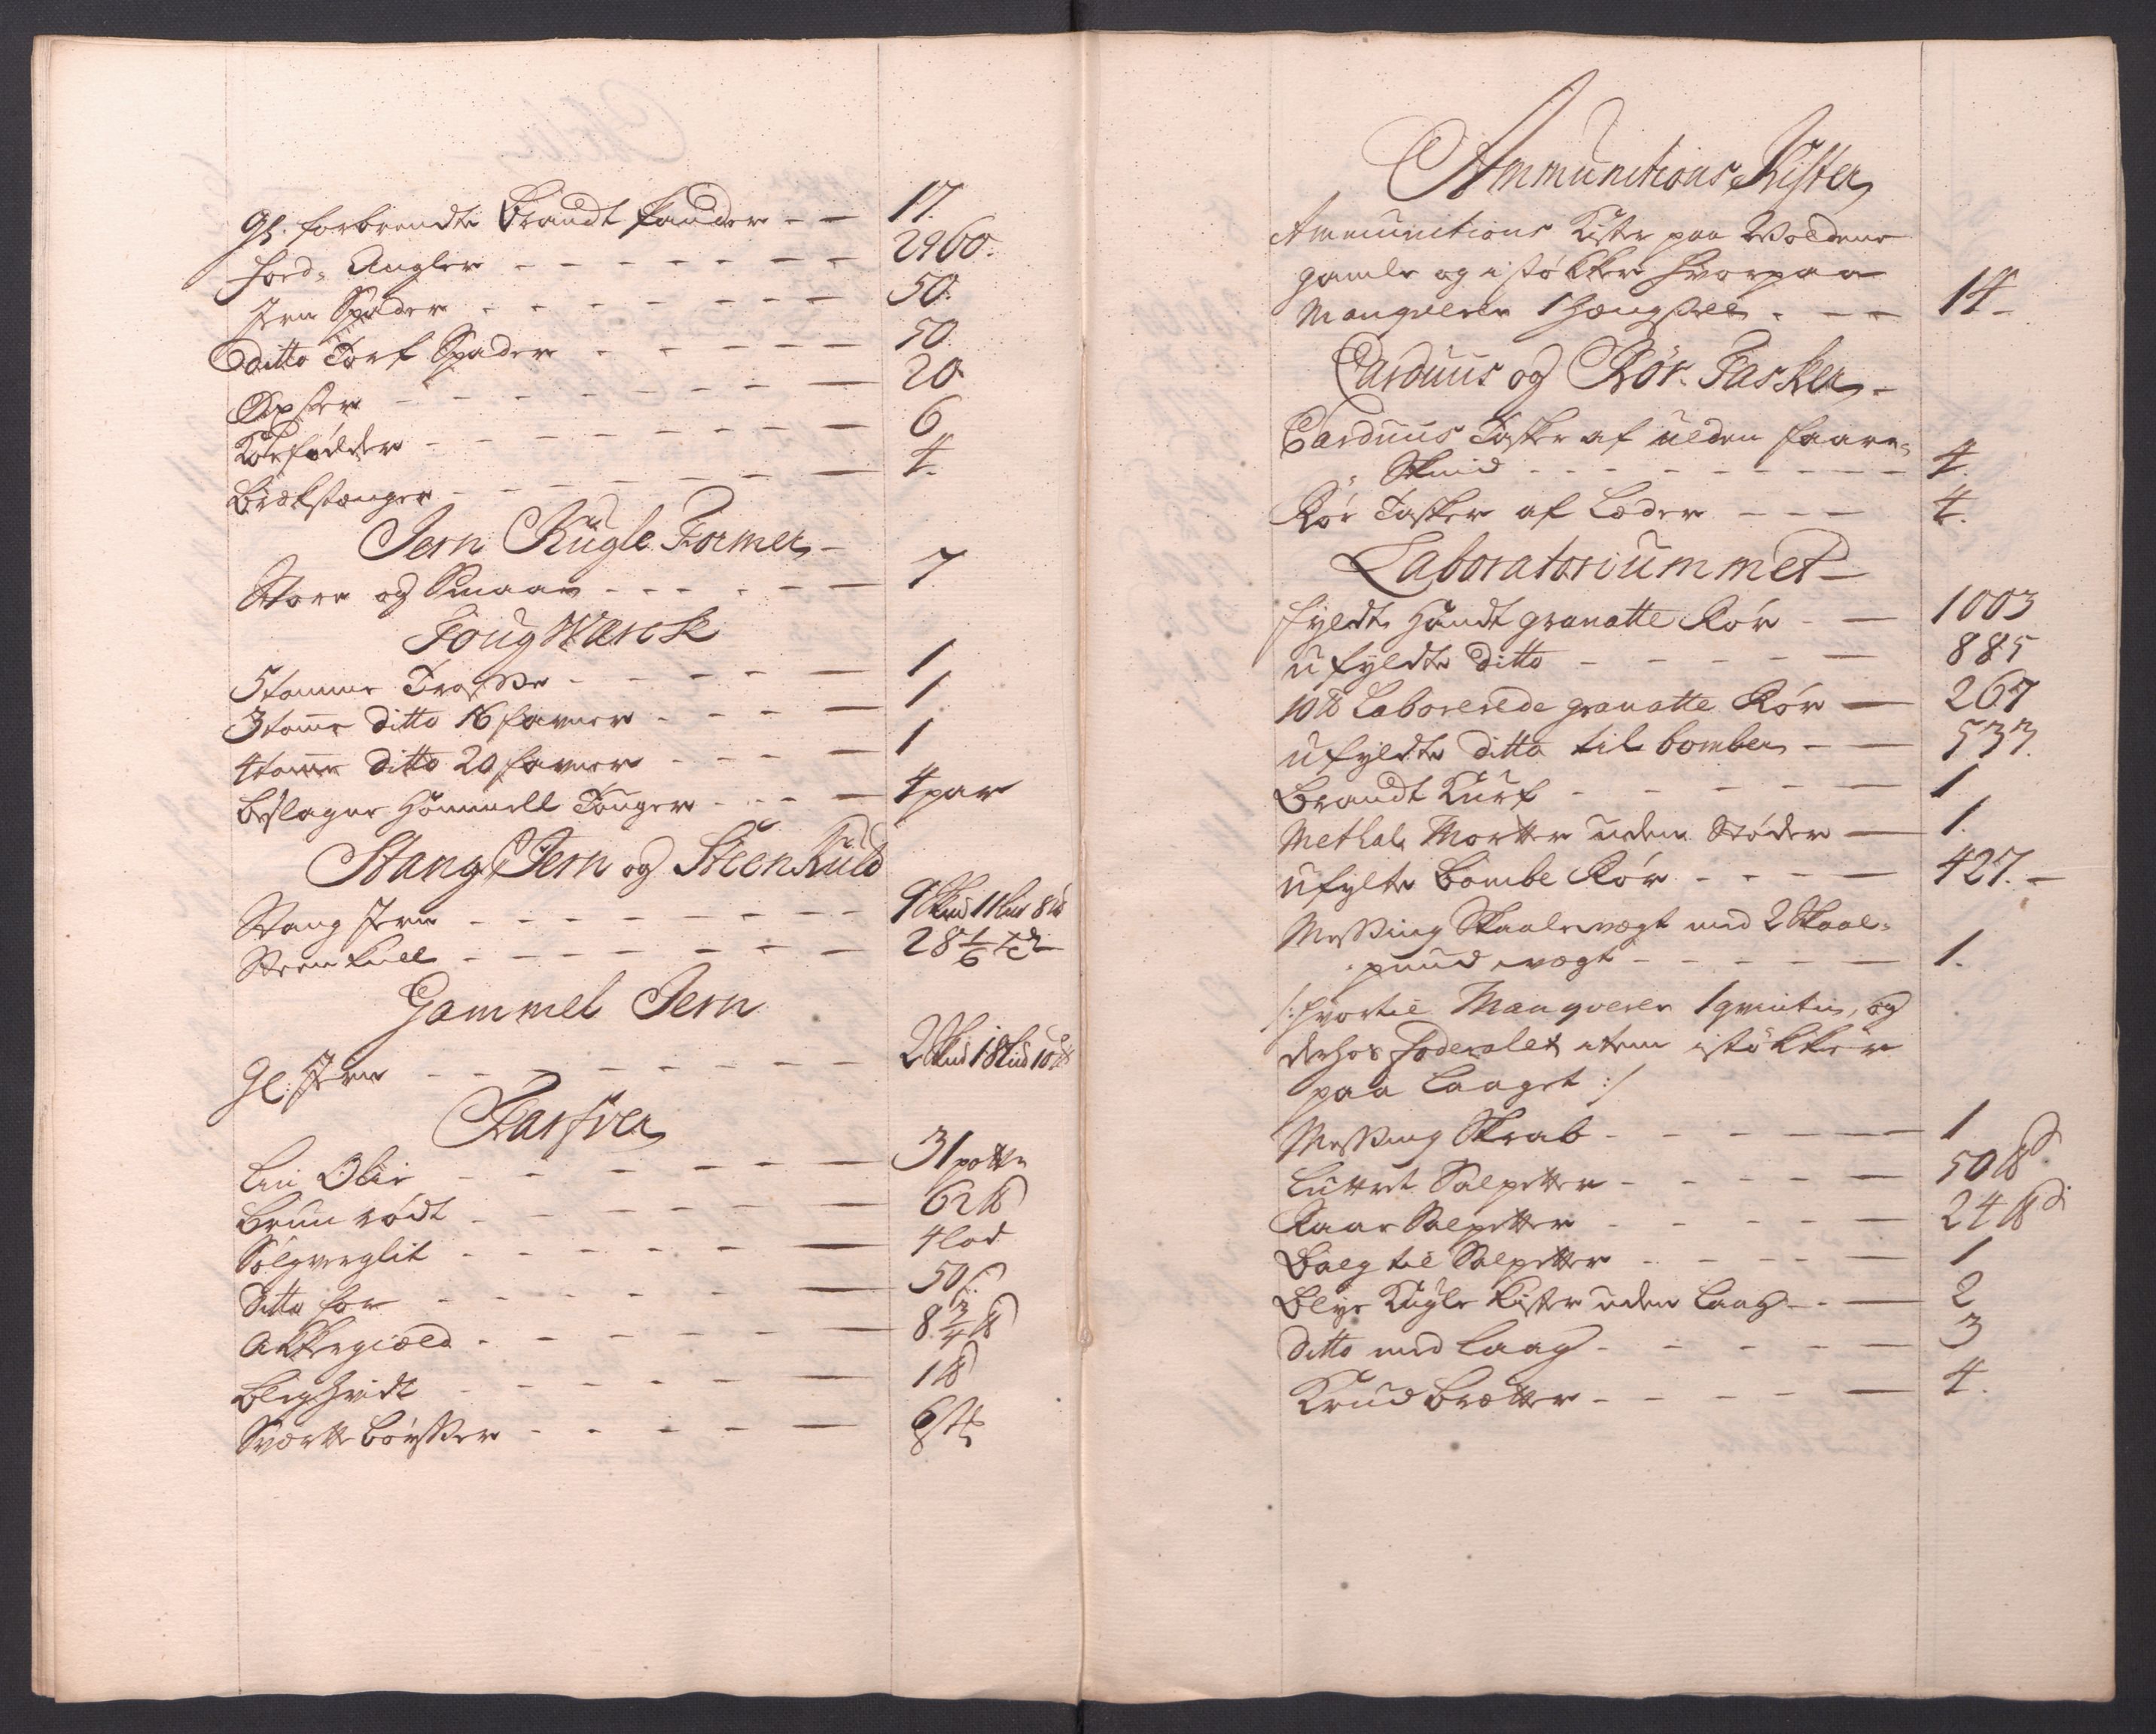 gl. forbrendte Brandt Pander – – 17.
Foed-Angler – – – – – – – 2960.
Jern Spader – – – – – – – 50.
ditto Torf Spader – – – – – – 50.
Øxser – – – – – – – – 20
Koefødder – – – – – – – 6
Brækstænger – – – – – – – 4.
Jern Kugle Former –
Store og Smaae – – – – – – 7
Toug Wærck
5tomme Trosse – – – – – 1
3tome ditto 16 favner – – – – 1.
4tomme ditto 20 favner – – – – 1
beslagne Hommell Touger – – – – 4 par
Stang Jern og SteenKuld
Stang Jern – – – – – – – – 9 Skud 11 lud 8 ℔
Steen Kull – – – – – – – 28 1/6
Gammel Jern
gl: Jern – – – – – – – – 2 Skud 18 Lud 10 ℔
Farfver
Lin Olie – – – – – – – 31 potte
Bruun rødt – – – – – – – 62 ℔
Sølgverglit – – – – – – 4 lod
Ditto for – – – – – – 50
Akkergield – – – – – – – 8 3/4 ℔
Blyghvidt – – – – – – – 1 ℔
Sværtte børster – – – – – – 6 st
Ammunitions Kister
Ammunitions Kiste paa Woldene
gamle og i støkker hvorpaa
Manqverer 1 Hængsell – – – 14 –
Carduus og Rör-Tasker –
Carduus Tasker af ulden faare-
Skind – – – – – – – – – – 4.
Rör Tasker af Læder – – – 4.
Laboratoriummet –
fyldte Handt granatte Rör – – 1003
ufyldte ditto – – – – – – 885
10 ℔ Laborerede granatte Rör – 267
ufyldte ditto til bomber – – 533.
Brandt Kurf – – – – – – 1
Methal Morter uden Støder – 1.
ufylte Bombe Rör – – – – – 427. –
Messing Skaalevægt med 2 Skaal-
pund vægt – – – – – – 1.
/: hvortil Manqverer 1 qvintin, og
derhos foderalet item i støkker
paa Laaget :/
Messing Skrab – – – – – – 1
Luttret Salpetter – – – – – 50 ℔
Raae Salpetter – – – – – 24 ℔
Balg til Salpetter – – – – – 1
Blye Kugle Kister uden Laag – – – 2
Ditto med Laag – – – – – – 3
Krud Brætter – – – – – – 4.